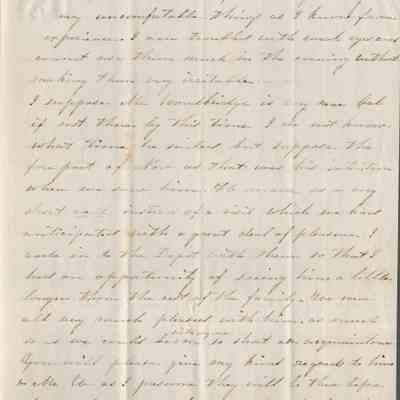 very uncomfortable things as I know from
experience. I am troubled with weak eyes and
cannot use them much in the evening without
making them very irritable.
I suppose Mr Woodbridge is my now but
if not there by this time I do not know
what time he sailed but suppose the
fore part of Nov as that was his intention
when we saw him. He made us a very
short call instead of a visit which we had
anticipated with a great deal of pleasure. I
rode in to the Depot with them so that I
had an opportunity of seeing him a little
longer than the rest of the family. We were
all very much pleased with him, as much
so as we could be with so short an acquaintance
You will please give my kind regards to him
& Mr as I presume they will be there before